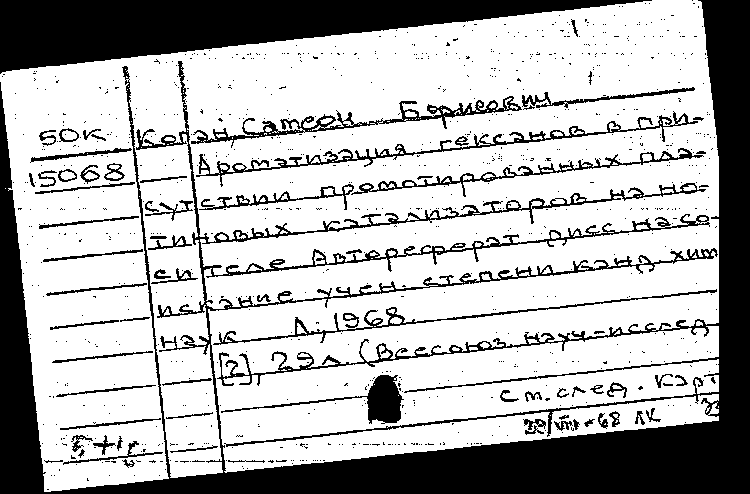 50к Коган, Самсон Борисович.
15068 Ароматизация гексанов в при-
сутствии промотированных пла-
тиновых катализаторов на но-
сителе Автореферат дисс на со-
искание учен. степени канд. хим
наук Л., 1968.
[2], 29л. (Всесоюз. науч-исслед
см. след. карт
29/VIII-68 ЛК